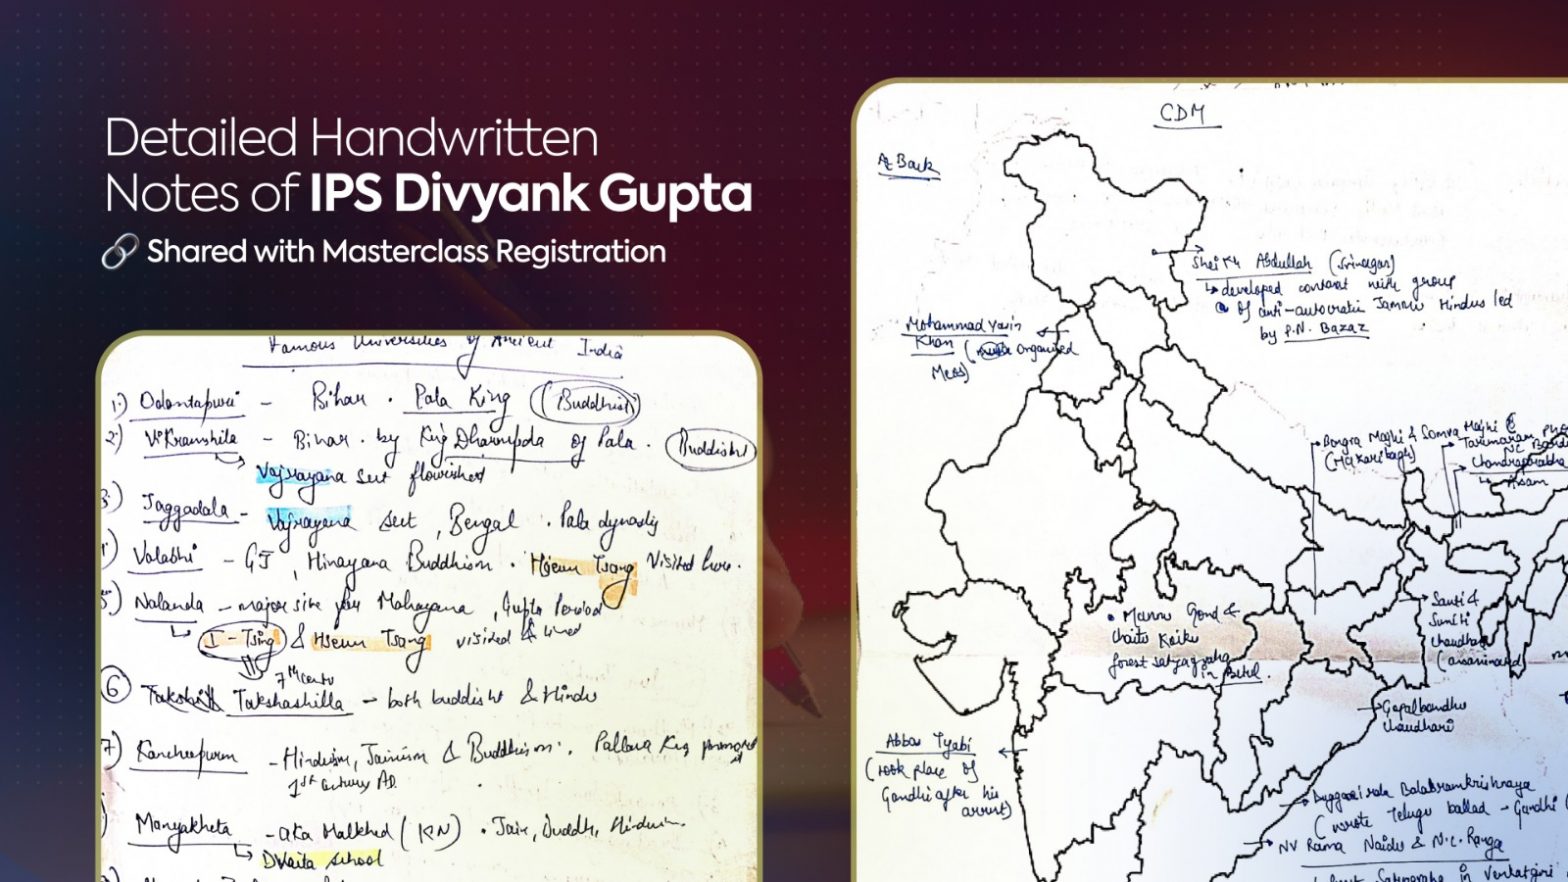 Detailed Handwritten
Notes of IPS Divyank Gupta
Shared with Masterclass Registration
Famous Universities of Ancient India
1.) Odantapuri - Bihar . Pala King (Buddhist)
2.) Vikramshila - Bihar . by King Dharmpala of Pala . Buddhist
Vajrayana sect flourished
3.) Jaggadala - Vajrayana sect , Bengal . Pala dynasty
Valabhi - GJ , Hinayana Buddhism . Hieun Tsang Visited here.
5.) Nalanda - major site for Mahayana , Gupta Period
I-Tsing & Hieun Tsang visited & lived
7th cent
6 Takshashilla - both buddhist & Hindu
7) Kancheepuram - Hinduism, Jainism & Buddhism . Pallava King
1st Century AD.
Manyakheta - aka Malkhed (KN) . Jain, Buddh, Hinduism.
Dvaita School
CDM
Az Back
Sheikh Abdullah (Srinagar)
developed contact with group
of anti-autocratic Jammu Hindus led
by P.N. Bazaz
Mohammad Yasin
Khan ( organised
Meos)
Bongra Majhi & Somra Majhi
(Hazaribagh)
Chandraprabha
Assam
Mannu Gond &
Chaitu Koiku
forest satyagraha
in Betul.
Santi &
Suniti
Chaudhary
Gopalbandhu
Chaudhari
Abbas Tyabji
(took place of
Gandhi after his
arrest)
Duggirala Balaramkrishnaya
(wrote Telugu ballad - Gandhi
NV Rama Naidu & N.C. Ranga
forest Satyagraha in Venkatgiri